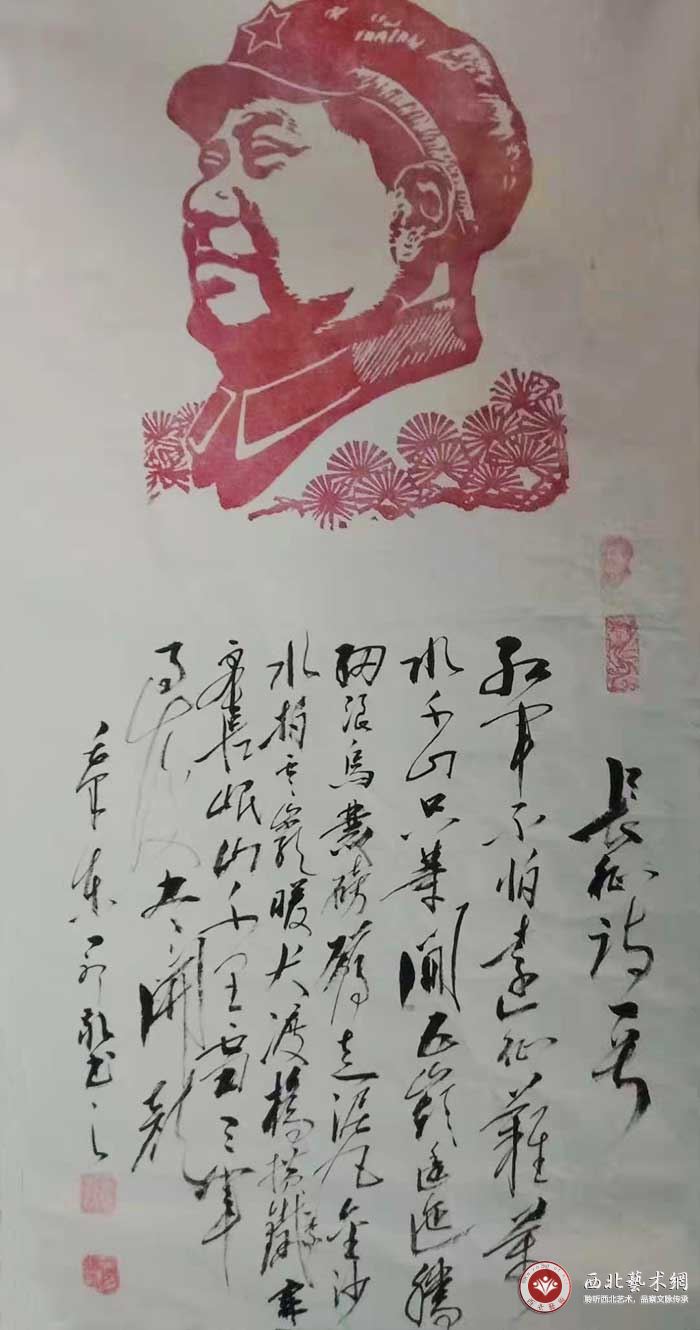 長征诗一首
红军不怕遠征難萬
水千山只等闲五嶺逶迤腾
细浪烏蒙磅礴走泥丸金沙
水拍雲崖暖大渡橋横鐵索寒
更喜岷山千里雪三軍
过后尽開颜
東
書之
西北藝術網
聆听西北艺术，品察文脉传承